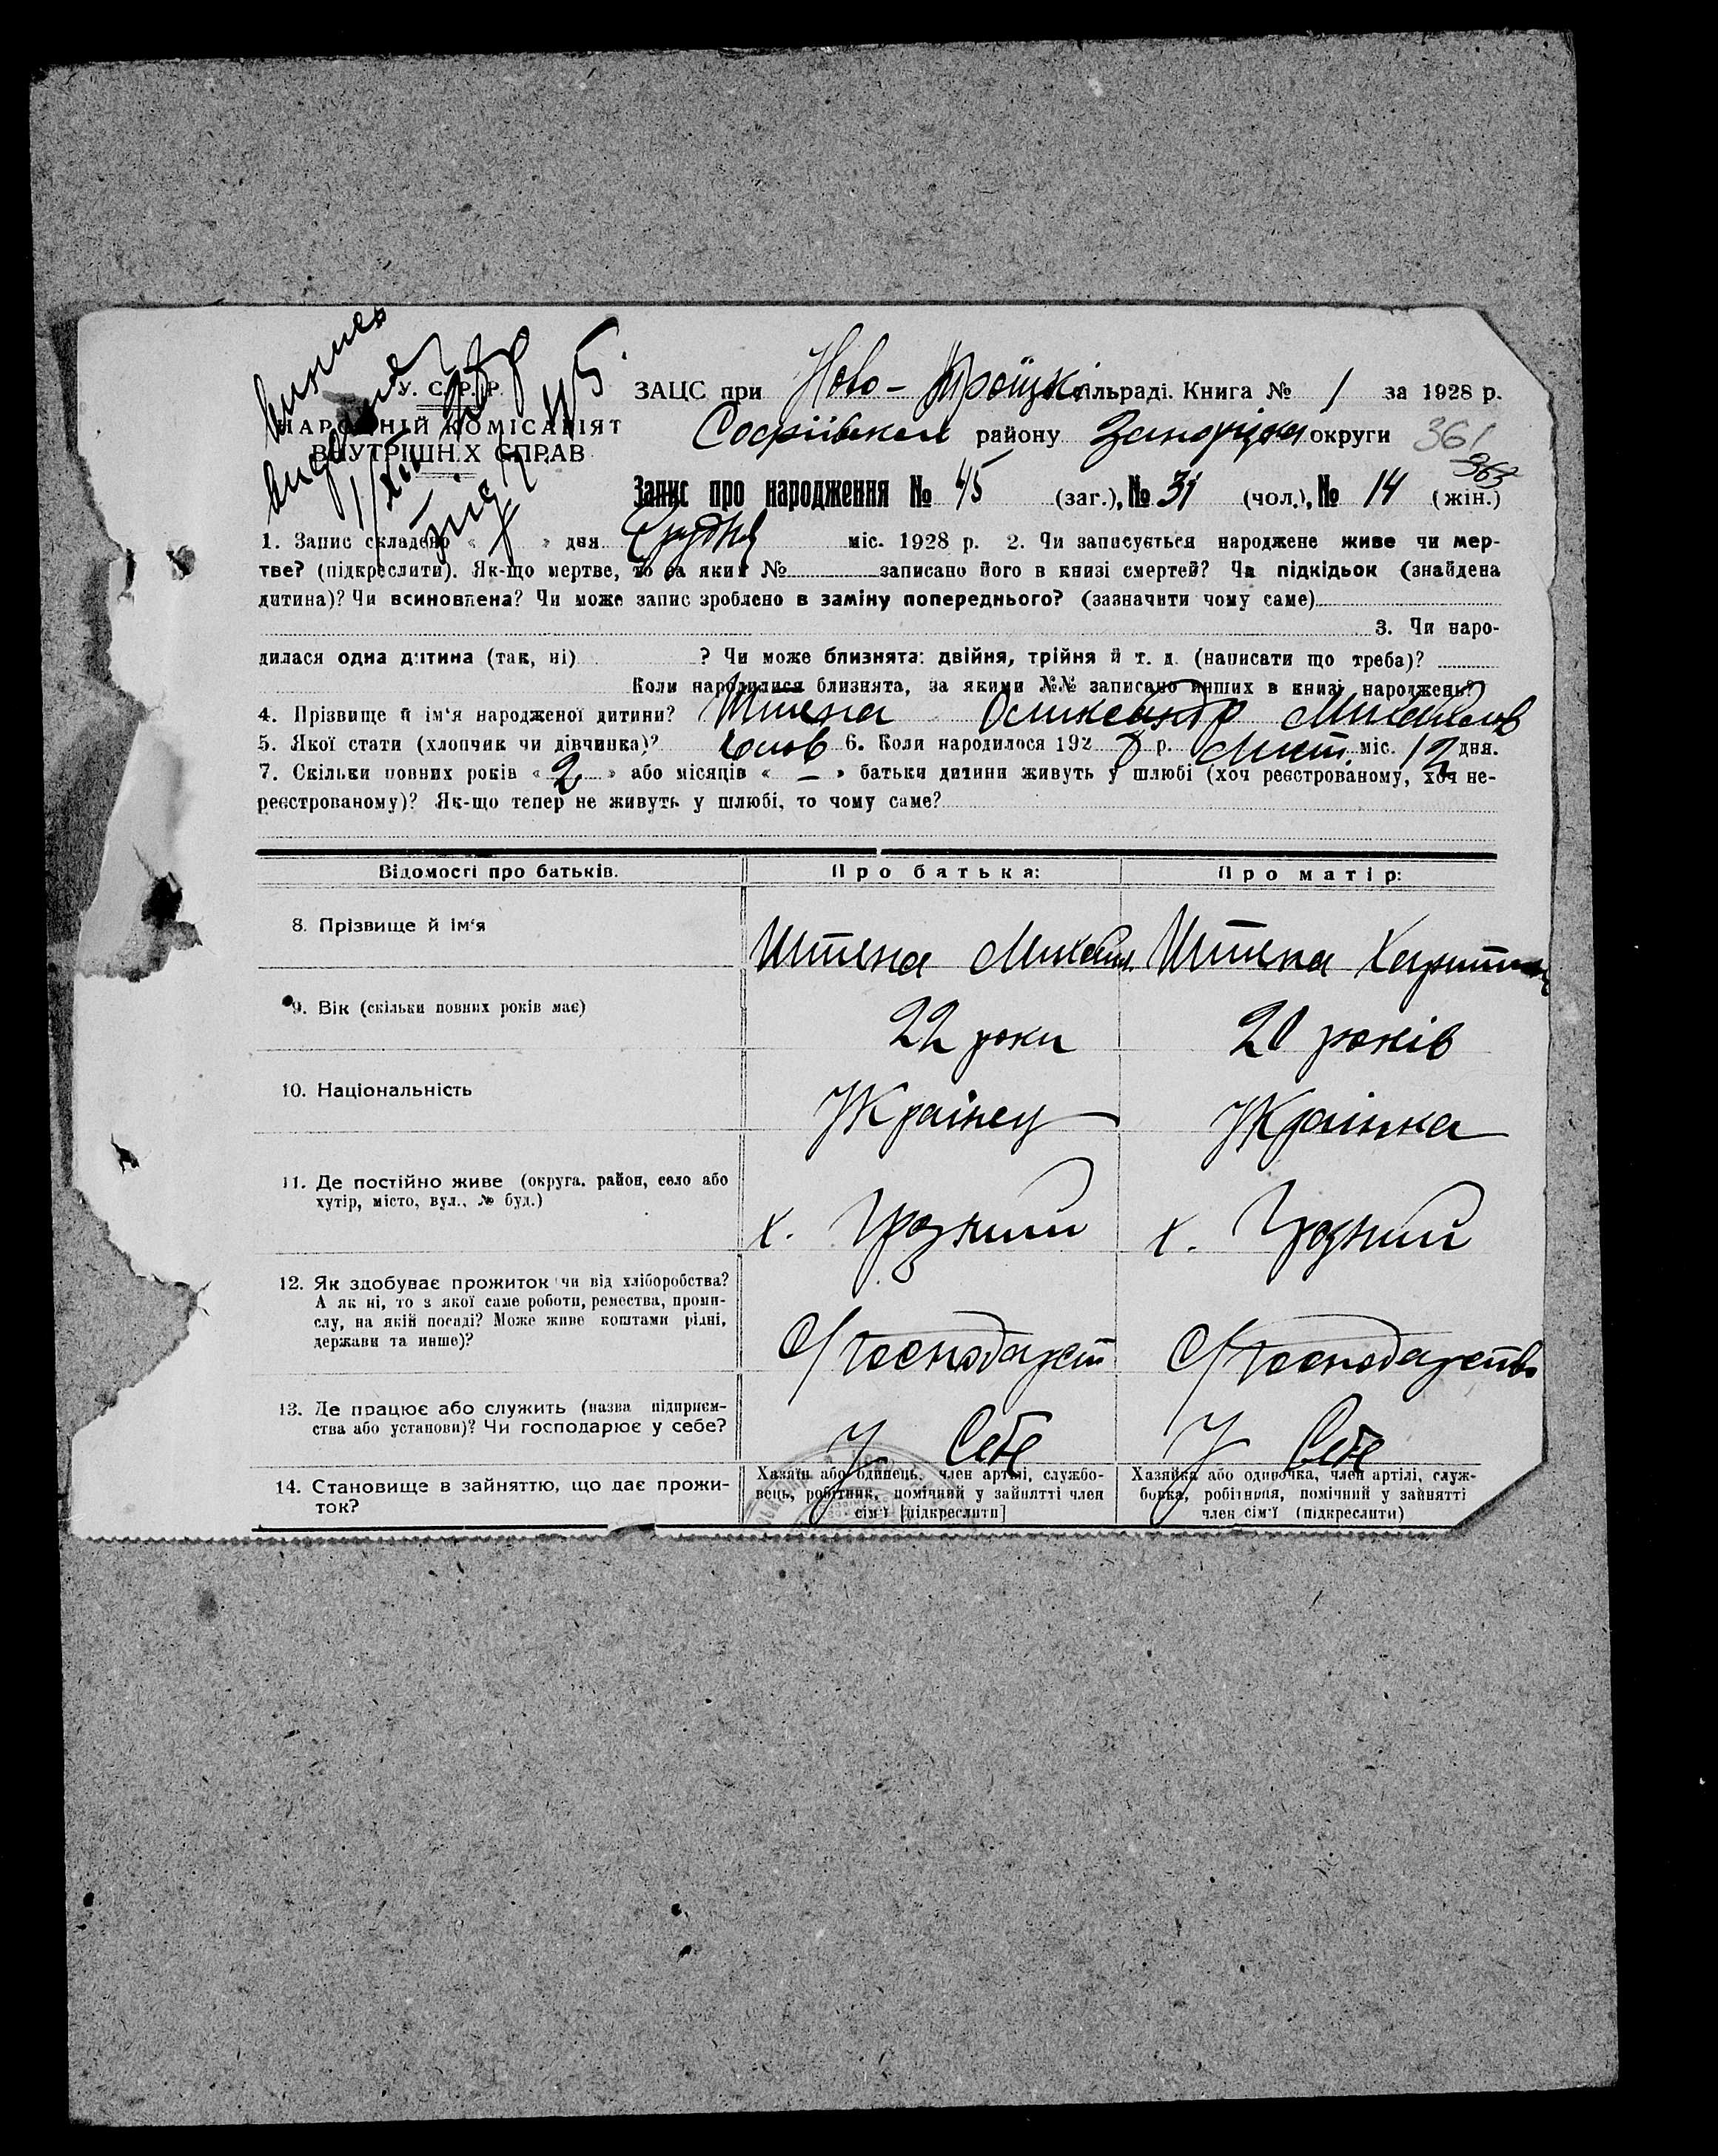 У. С. Р. Р.
НАРОДНІЙ КОМІСАРІЯТ
ВНУТРІШНІХ СПРАВ
ЗАЦС при Ново-Троїцкі сільраді. Книга № 1 за 1928 р.
Софіївськ району Запоріцьк округи 361
362
Запис про народження № 45 (заг.), № 31 (чол.), № 14 (жін.)
1. Запис складено « » дня Грудня міс. 1928 р. 2. Чи записується народжене живе чи мер-
тве? (підкреслити). Як-що мертве, то за яким № записано його в книзі смертей? Чи підкідьок (знайдена
дитина)? Чи всиновлена? Чи може запис зроблено в заміну попереднього? (зазначити чому саме)
3. Чи наро-
дилася одна дитина (так, ні) ? Чи може близнята: двійня, трійня й т. д. (написати що треба)?
Коли народилися близнята, за якими №№ записано инших в книзі народжень?
4. Прізвище й ім'я народженої дитини? Штепа Олександр Михайлов
5. Якої стати (хлопчик чи дівчинка)? Чолов 6. Коли народилося 192 8 р. Лист. міс. 12 дня.
7. Скільки повних років « 2 » або місяців « – » батьки дитини живуть у шлюбі (хоч реєстрованому, хоч не-
реєстрованому)? Як-що тепер не живуть у шлюбі, то чому саме?
Відомості про батьків. Про батька: Про матір:
8. Прізвище й ім'я
Штепа Михайл. Штепа Харитин
9. Вік (скільки повних років має)
22 роки 20 років
10. Національність
Українец Українка
11. Де постійно живе (округа, район, село або
хутір, місто, вул., № буд.)
х. Грозний х. Грозний
12. Як здобуває прожиток чи від хліборобства?
А як ні, то з якої саме роботи, ремества, проми-
слу, на якій посаді? Може живе коштами рідні,
держави та инше)?
С/Господарст С/Господарство
13. Де працює або служить (назва підприєм-
ства або установи)? Чи господарює у себе?
У Себе У Себе
14. Становище в зайняттю, що дає прожи-
ток?
Хазяїн або одинець, член артілі, службо-
вець, робітник, помічний у зайнятті член
сім'ї [підкреслити]
Хазяйка або одиночка, член артілі, служ-
бовка, робітниця, помічний у зайнятті
член сім'ї (підкреслити)